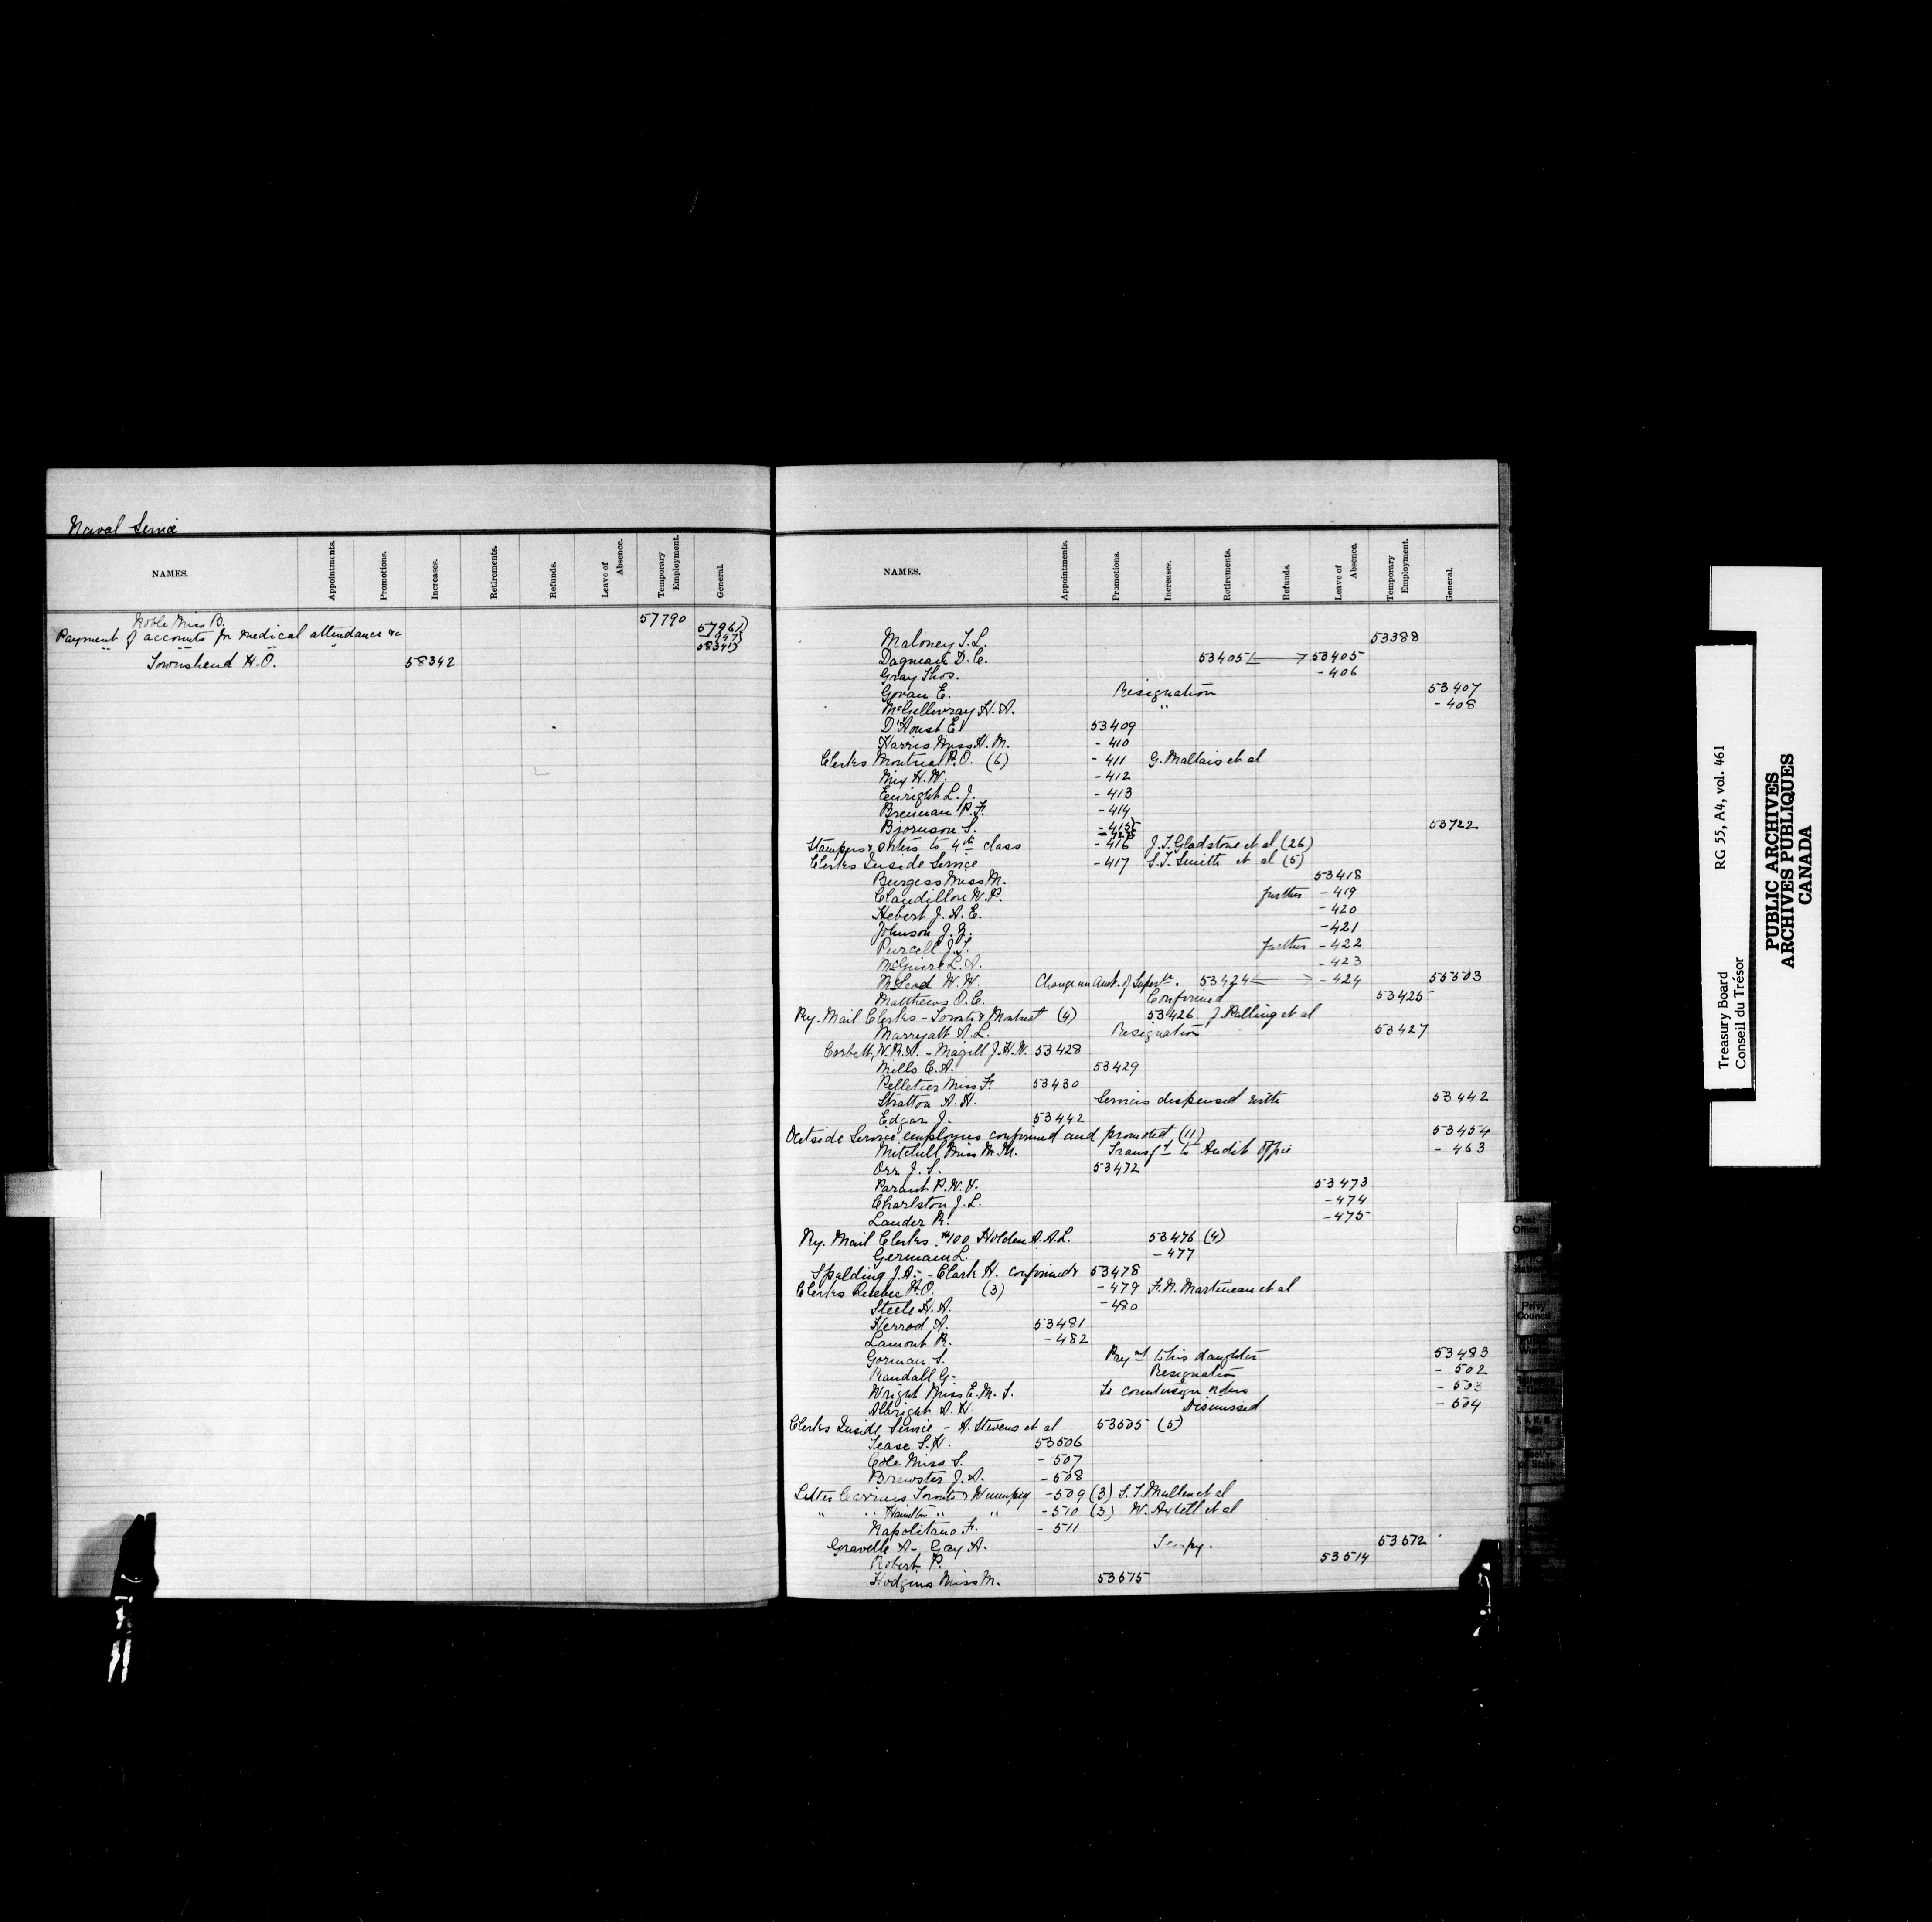 Naval Service
NAMES. Appointments. Promotions. Increases. Retirements. Refunds. Leave of Absence. Temporary Employment. General.
Noble Miss B. 57790
Payment of accounts for medical attendance &c 57961)
" " " " 58341)
Townshend H.O. 58342
NAMES. Appointments. Promotions. Increases. Retirements. Refunds. Leave of Absence. Temporary Employment. General.
Maloney T.L. 53388
Dagneau D.C. 53405 53405
Gray Thos. - 406
Govan E. Resignation 53407
McGillivray H.A. " - 408
D'Aoust E. 53409
Harris Miss H.M. - 410
Clerks Montreal P.O. (6) - 411 G. Maltais et al
Mix H.W. - 412
Enright L.J. - 413
Brennan P.F. - 414
Bjornson S. - 415 53722
Stampers & orters to 4th class - 416 J.T. Gladstone et al (26)
Clerks Inside Service - 417 S.T. Smith et al (5)
Burgess Miss M. 53418
Claudillon W.P. further - 419
Hebert J.A.E. - 420
Johnson J.G. - 421
Purcell J.T. further - 422
McGuire L.A. - 423
McLeod W.W. Change in amt. of Super'n. 53424 - 424 55503
Matthews O.C. Confirmed 53425
Ry. Mail Clerks - Toronto & Montreal (4) 53426 J. Pulling et al
Marryatt A.L. Resignation 53427
Corbett, W.R.A. - Magill J.H.W. 53428
Mills C.A. 53429
Pelletier Miss F. 53430
Stratton A.H. Services dispensed with 53442
Edgar J. 53442
Outside Service employees confirmed and promoted (11) 53454
Mitchell Miss M.M. Transf'd to Audit Office - 463
Orr J.S. 53472
Parant P.W.V. 53473
Charlston J.L. - 474
Lander R. - 475
Ry. Mail Clerks $100 Holden A.A.L. 53476 (4)
Germain L. - 477
Spalding J.A. - Clark H. confirmed 53478
Clerks Quebec P.O. (3) - 479 F.N. Martineau et al
Steele H.A. - 480
Herrod A. 53481
Lamont R. - 482
Gorman S. Pay't to his daughter 53483
Randall G. Resignation - 502
Wright Miss E.M.S. To countersign orders - 503
Albright A.H. Dismissed - 504
Clerks Inside Service - A. Stevens et al 53505 (5)
Tease S.H. 53506
Cole Miss S. - 507
Brewster J.A. - 508
Letter Carriers Toronto & Winnipeg - 509 (3) S.T. Mullen et al
" " Hamilton " " - 510 (3) W. Axtell et al
Napolitano F. - 511
Gravelle A - Gay A. Tempy. 53512
Robert P. 53514
Hodgins Miss M. 53515
Post Office
Privy Council
Works
of State
Treasury Board RG 55, A4, vol. 461
Conseil du Trésor
PUBLIC ARCHIVES
ARCHIVES PUBLIQUES
CANADA